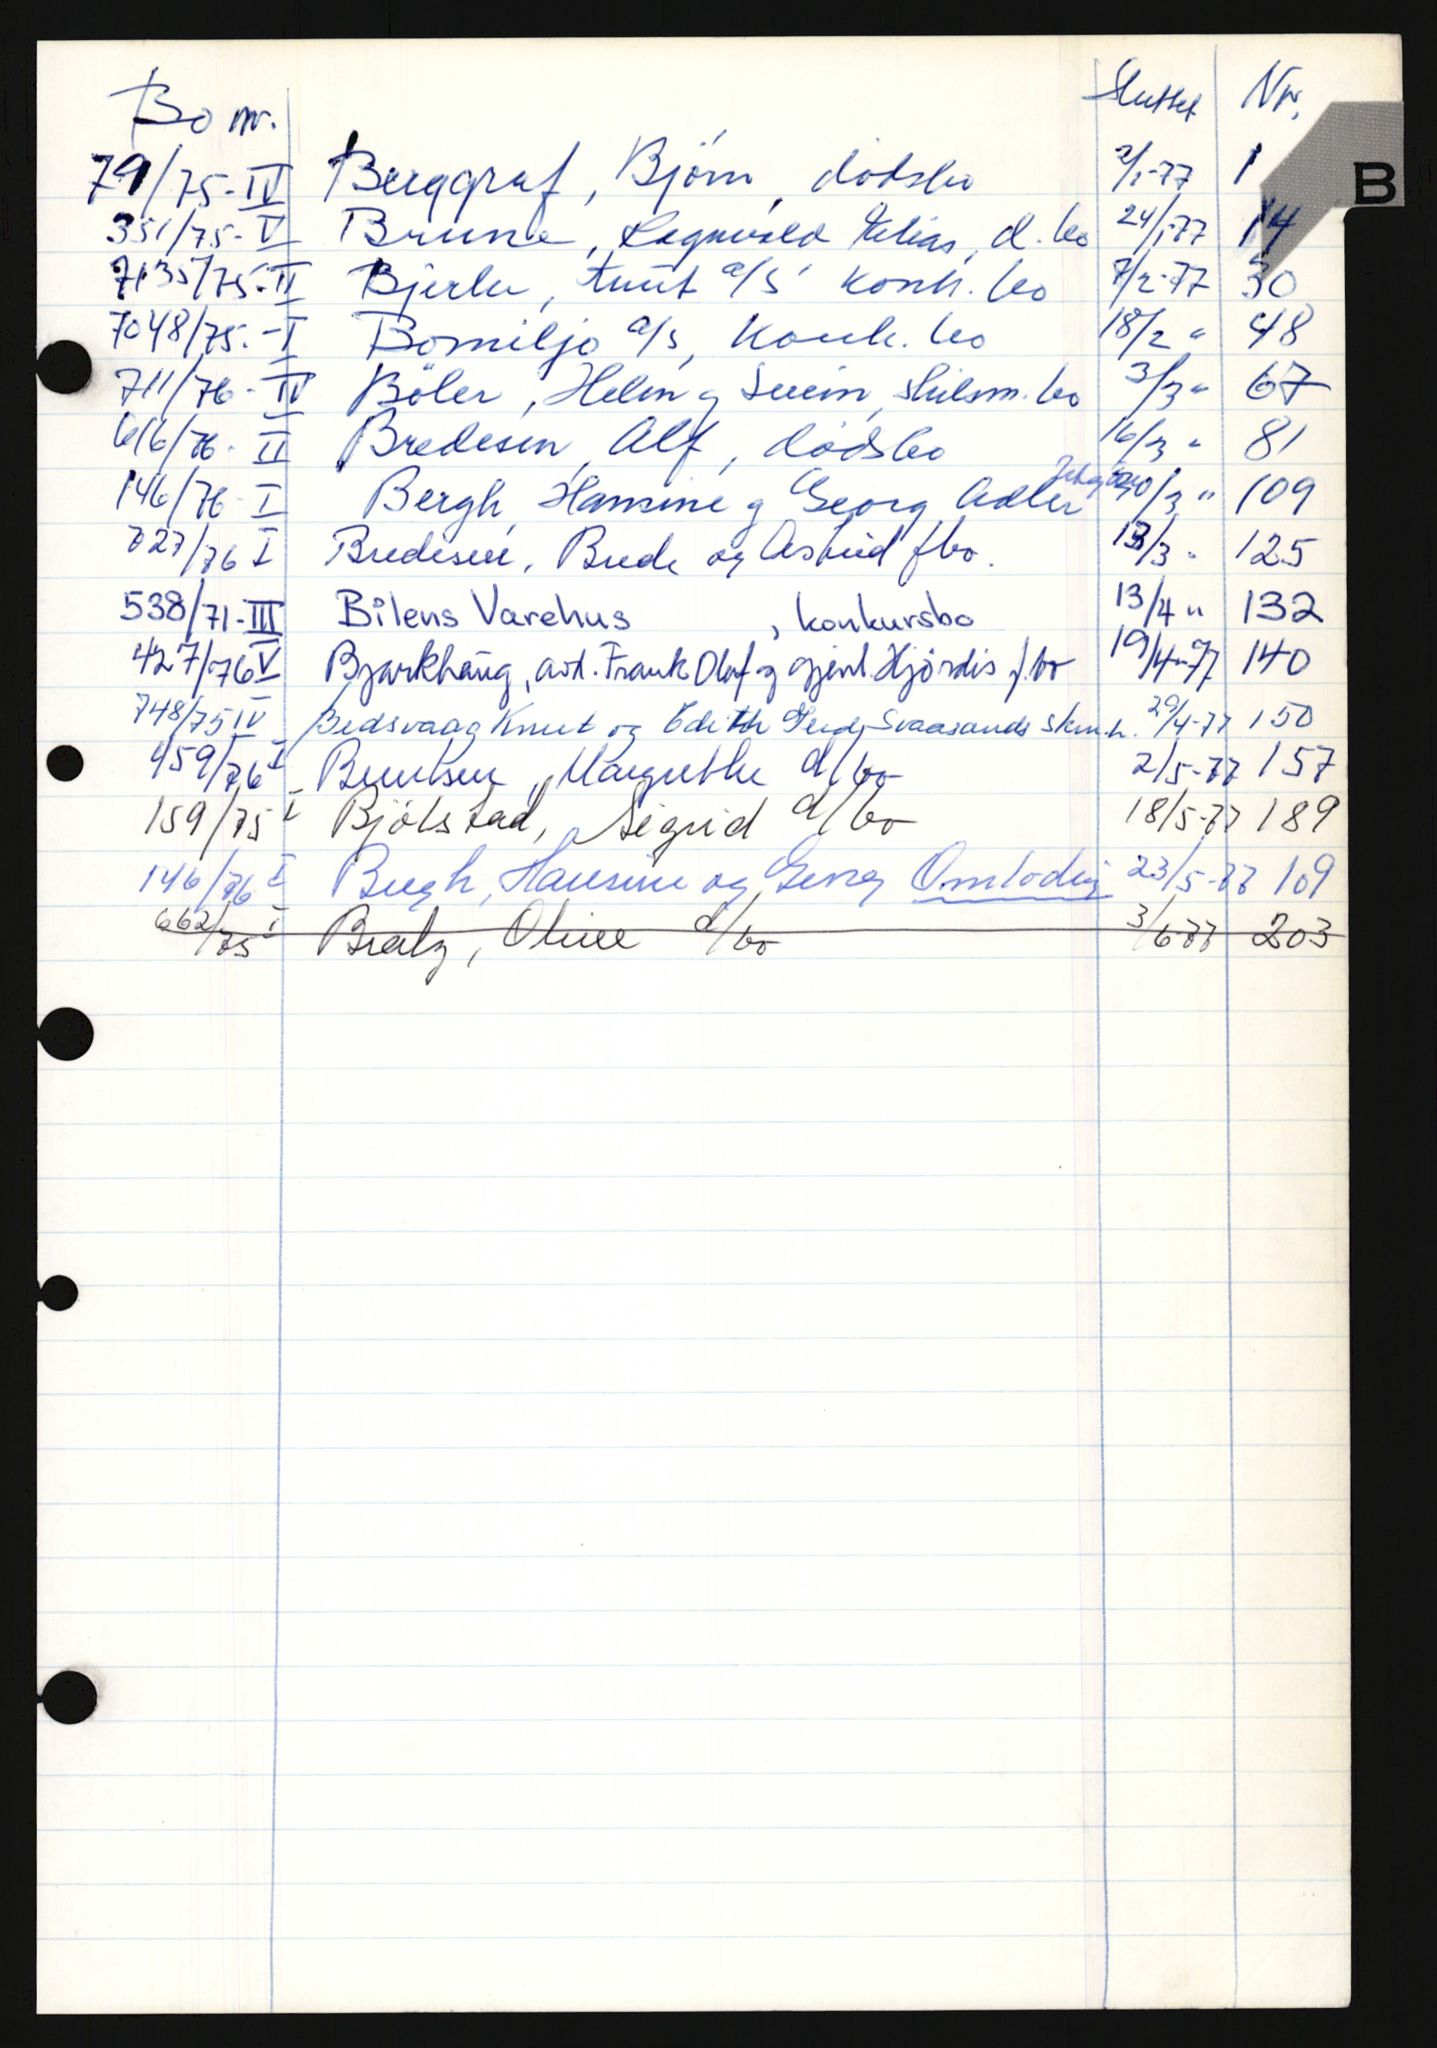 Bo nr. Sluttet Nr.
B
79/75-IV Berggraf, Bjørn, dødsbo 2/1-77 1
351/75-V Brune, Ragnvald Elias, d.bo 24/1-77 14
7135/75-II Bjerke, Knut a/s konk. bo 7/2-77 30
7048/75.-I Bomiljø a/s, konk. bo 18/2 " 48
711/76-IV Böler, Helen og Svein, skilsm. bo 3/3 " 67
616/76-II Bredesen, Alf, dødsbo 16/3 " 81
146/76-I Bergh, Hansine og Georg Adler 30/3 " 109
727/76 I Bredesen, Brede og Astrid f.bo. 13/3 " 125
538/71-III Bilens Varehus, konkursbo 13/4 " 132
427/76 V Bjarkhaug, avd. Frank Olaf og gjenl. Hjørdis f.bo 19/4-77 140
748/75 IV Bedsvaag Knut og Edith Gerdy Svaasands skm.h. 29/4-77 150
459/76 I Berntsen, Margrethe d/bo 2/5-77 157
159/75 I Bjölstad, Sigrid d/bo 18/5-77 189
146/76 I Bergh, Hansine og Georg Omlodeig 23/5-77 109
662/75 I Bratz, Olive d/bo 3/6-77 203